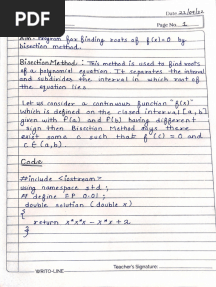 PDF
Date 22/09/02
Page No. 1
Aim - Program for finding roots of f(x)=0 by
bisection method.
Bisection Method : This method is used to find roots
of a polynomial equation. It separates the interval
and subdivides the interval in which root of
the equation lies.
Let us consider a continuous function "f(x)"
which is defined on the closed interval [a,b]
given with f(a) and f(b) having different
sign then Bisection Method says there
exist some c such that f(c) = 0 and
c ∈ (a,b).
Code
#include <iostream>
using namespace std ;
# define EP 0.01 ;
double solution (double x)
{
return x*x*x - x*x + 2
}
WRITO-LINE
Teacher's Signature: